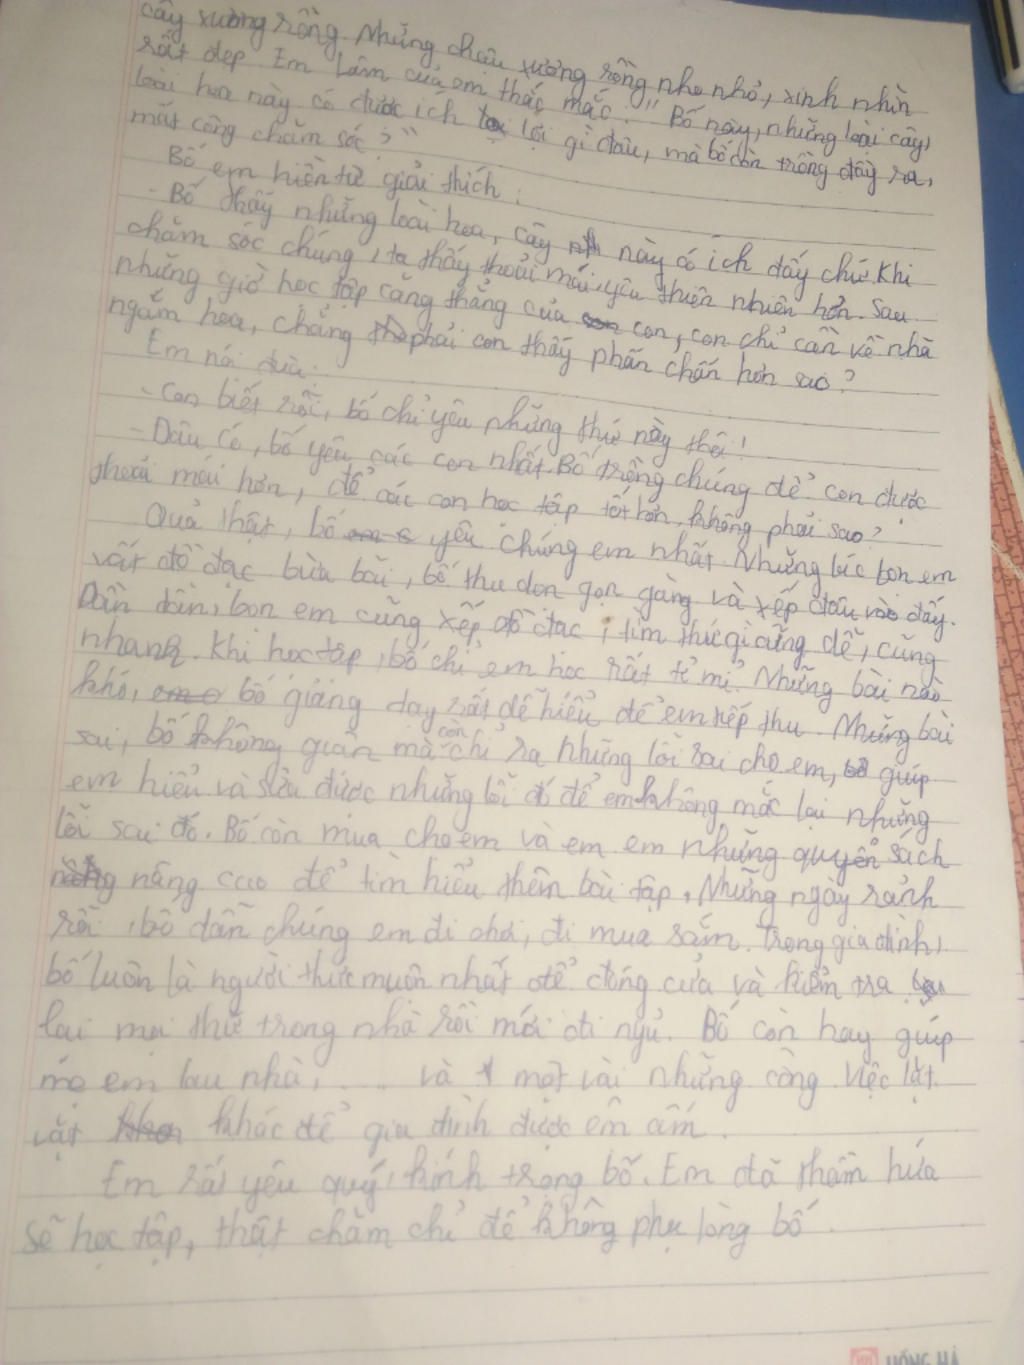 cây xương rồng. Những chậu xương rồng nho nhỏ, xinh nhìn
rất đẹp. Em Lâm của em thắc mắc: "Bố này, những loài cây,
loài hoa này có được ích lợi gì đâu, mà bố còn trồng đầy ra,
mất công chăm sóc?"
Bố em hiền từ giải thích:
- Bố thấy những loài hoa, cây này có ích đấy chứ. Khi
chăm sóc chúng, ta thấy thoải mái, yêu thiên nhiên hơn. Sau
những giờ học tập căng thẳng của con, con chỉ cần về nhà
ngắm hoa, chẳng phải con thấy phấn chấn hơn sao?
Em nói đùa:
- Con biết rồi, bố chỉ yêu những thứ này thôi!
- Đâu có, bố yêu các con nhất. Bố trồng chúng để con được
thoải mái hơn, để các con học tập tốt hơn, không phải sao?
Quả thật, bố yêu chúng em nhất. Những lúc bọn em
vứt đồ đạc bừa bãi, bố thu dọn gọn gàng và xếp đâu vào đấy.
Dần dần, bọn em cũng xếp đồ đạc, tìm thứ gì cũng dễ, cũng
nhanh. Khi học tập, bố chỉ em học rất tỉ mỉ. Những bài nào
khó, bố giảng dạy rất dễ hiểu để em tiếp thu. Những bài
sai, bố không giận mà còn chỉ ra những lỗi sai cho em, giúp
em hiểu và sửa được những lỗi đó để em không mắc lại những
lỗi sai đó. Bố còn mua cho em và em em những quyển sách
nâng cao để tìm hiểu thêm bài tập. Những ngày rảnh
rỗi, bố dẫn chúng em đi chơi, đi mua sắm. Trong gia đình,
bố luôn là người thức muộn nhất để đóng cửa và kiểm tra
lại mọi thứ trong nhà rồi mới đi ngủ. Bố còn hay giúp
mẹ em lau nhà, .... và một vài những công việc lặt
vặt khác để gia đình được êm ấm.
Em rất yêu quý, kính trọng bố. Em đã thầm hứa
sẽ học tập, thật chăm chỉ để không phụ lòng bố.
HỒNG HÀ